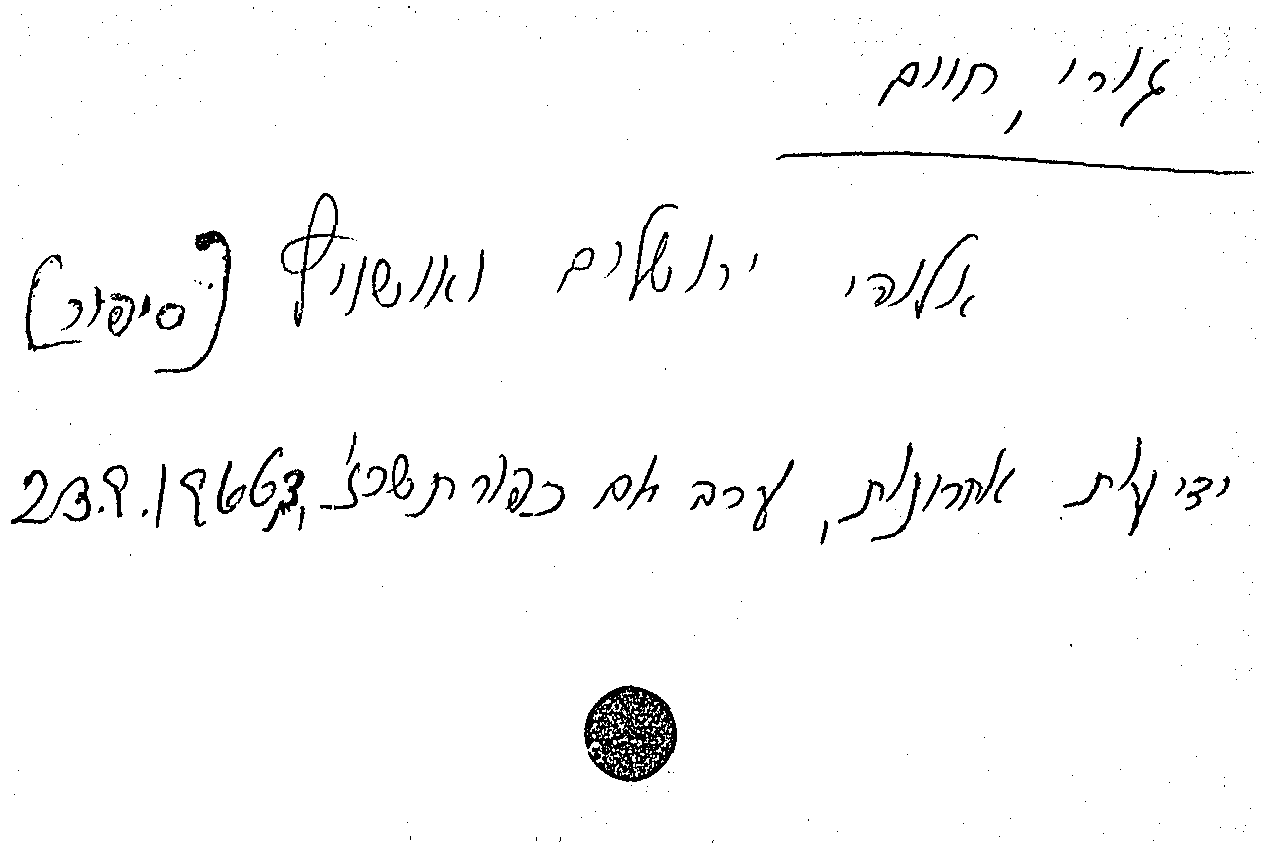 גורי, חיים
אלוהי ירושלים ואושויץ [סיפור]
ידיעות אחרונות, ערב יום כפור תשכ"ז, 23.9.1966